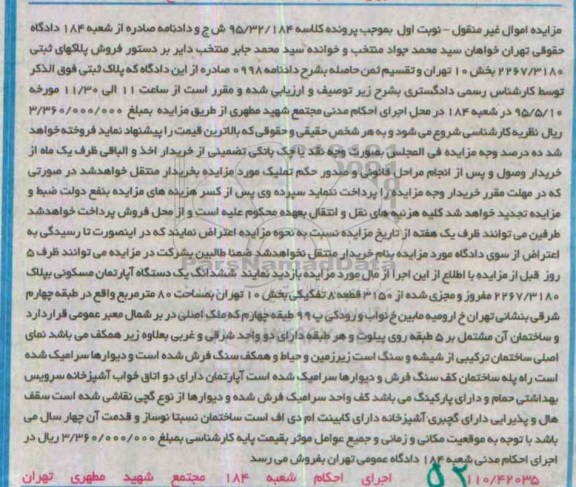 مزایده اموال غیر منقول - نوبت اول بموجب پرونده کلاسه ۹۵/۳۲/۱۸۴ ش ج و دادنامه صادره از شعبه ۱۸۴ دادگاه
حقوقی تهران خواهان سید محمد جواد منتخب و خوانده سید محمد جابر منتخب دایر بر دستور فروش پلاکهای ثبتی
۲۲۶۷/۳۱۸۰ بخش ۱۰ تهران و تقسیم ثمن حاصله بشرح دادنامه ۰۹۹۸ صادره از این دادگاه که پلاک ثبتی فوق الذکر
توسط کارشناس رسمی دادگستری بشرح زیر توصیف و ارزیابی شده و مقرر است از ساعت ۱۱ الی ۱۱/۳۰ مورخه
۹۵/۵/۱۰ در شعبه ۱۸۴ در محل اجرای احکام مدنی مجتمع شهید مطهری از طریق مزایده بمبلغ ۳/۳۶۰/۰۰۰/۰۰۰
ریال نظریه کارشناسی شروع می شود و به هر شخص حقیقی و حقوقی که بالاترین قیمت را پیشنهاد نماید فروخته خواهد
شد ده درصد وجه مزایده فی المجلس بصورت وجه نقد یا چک بانکی تضمینی از خریدار اخذ و الباقی ظرف یک ماه از
خریدار وصول و پس از انجام مراحل قانونی و صدور حکم تملیک مورد مزایده بخریدار منتقل خواهد شد در صورتی
که در مهلت مقرر خریدار وجه مزایده را پرداخت ننماید سپرده وی پس از کسر هزینه های مزایده بنفع دولت ضبط و
مزایده تجدید خواهد شد کلیه هزینه های نقل و انتقال بعهده محکوم علیه است و از محل فروش پرداخت خواهد شد
طرفین می توانند ظرف یک هفته از تاریخ مزایده نسبت به نحوه مزایده اعتراض نمایند که در اینصورت تا رسیدگی به
اعتراض از سوی دادگاه مورد مزایده بنام خریدار منتقل نخواهد شد ضمنا طالبین شرکت در مزایده می توانند ظرف ۵
روز قبل از مزایده با اطلاع از این اجرا از مال مورد مزایده بازدید نمایند ششدانگ یک دستگاه آپارتمان مسکونی بپلاک
۲۲۶۷/۳۱۸۰ مفروز و مجزی شده از ۳۱۵۰ قطعه ۸ تفکیکی بخش ۱۰ تهران بمساحت ۸۰ مترمربع واقع در طبقه چهارم
شرقی بنشانی تهران خ ارومیه مابین خ نواب و رودکی پ ۹۹ طبقه چهارم که ملک اصلی در بر شمال معبر عمومی قرار دارد
و ساختمان آن مشتمل بر ۵ طبقه روی پیلوت و هر طبقه دارای دو واحد شرقی و غربی بعلاوه زیر همکف می باشد نمای
اصلی ساختمان ترکیبی از شیشه و سنگ است زیرزمین و حیاط و همکف سنگ فرش شده است و دیوارها سرامیک شده
است راه پله ساختمان کف سنگ فرش و دیوارها سرامیک شده است آپارتمان دارای دو اتاق خواب آشپزخانه سرویس
بهداشتی حمام و دارای پارکینگ می باشد کف واحد سرامیک فرش شده و دیوارها از نوع گچی نقاشی شده است سقف
هال و پذیرایی دارای گچبری آشپزخانه دارای کابینت ام دی اف است ساختمان نسبتا نوساز و قدمت آن چهار سال می
باشد با توجه به موقعیت مکانی و زمانی و جمیع عوامل موثر بقیمت پایه کارشناسی بمبلغ ۳/۳۶۰/۰۰۰/۰۰۰ ریال در
اجرای احکام مدنی شعبه ۱۸۴ دادگاه عمومی تهران بفروش می رسد
۱۱۰/۴۲۰۳۵ اجرای احکام شعبه ۱۸۴ مجتمع شهید مطهری تهران
۵۲